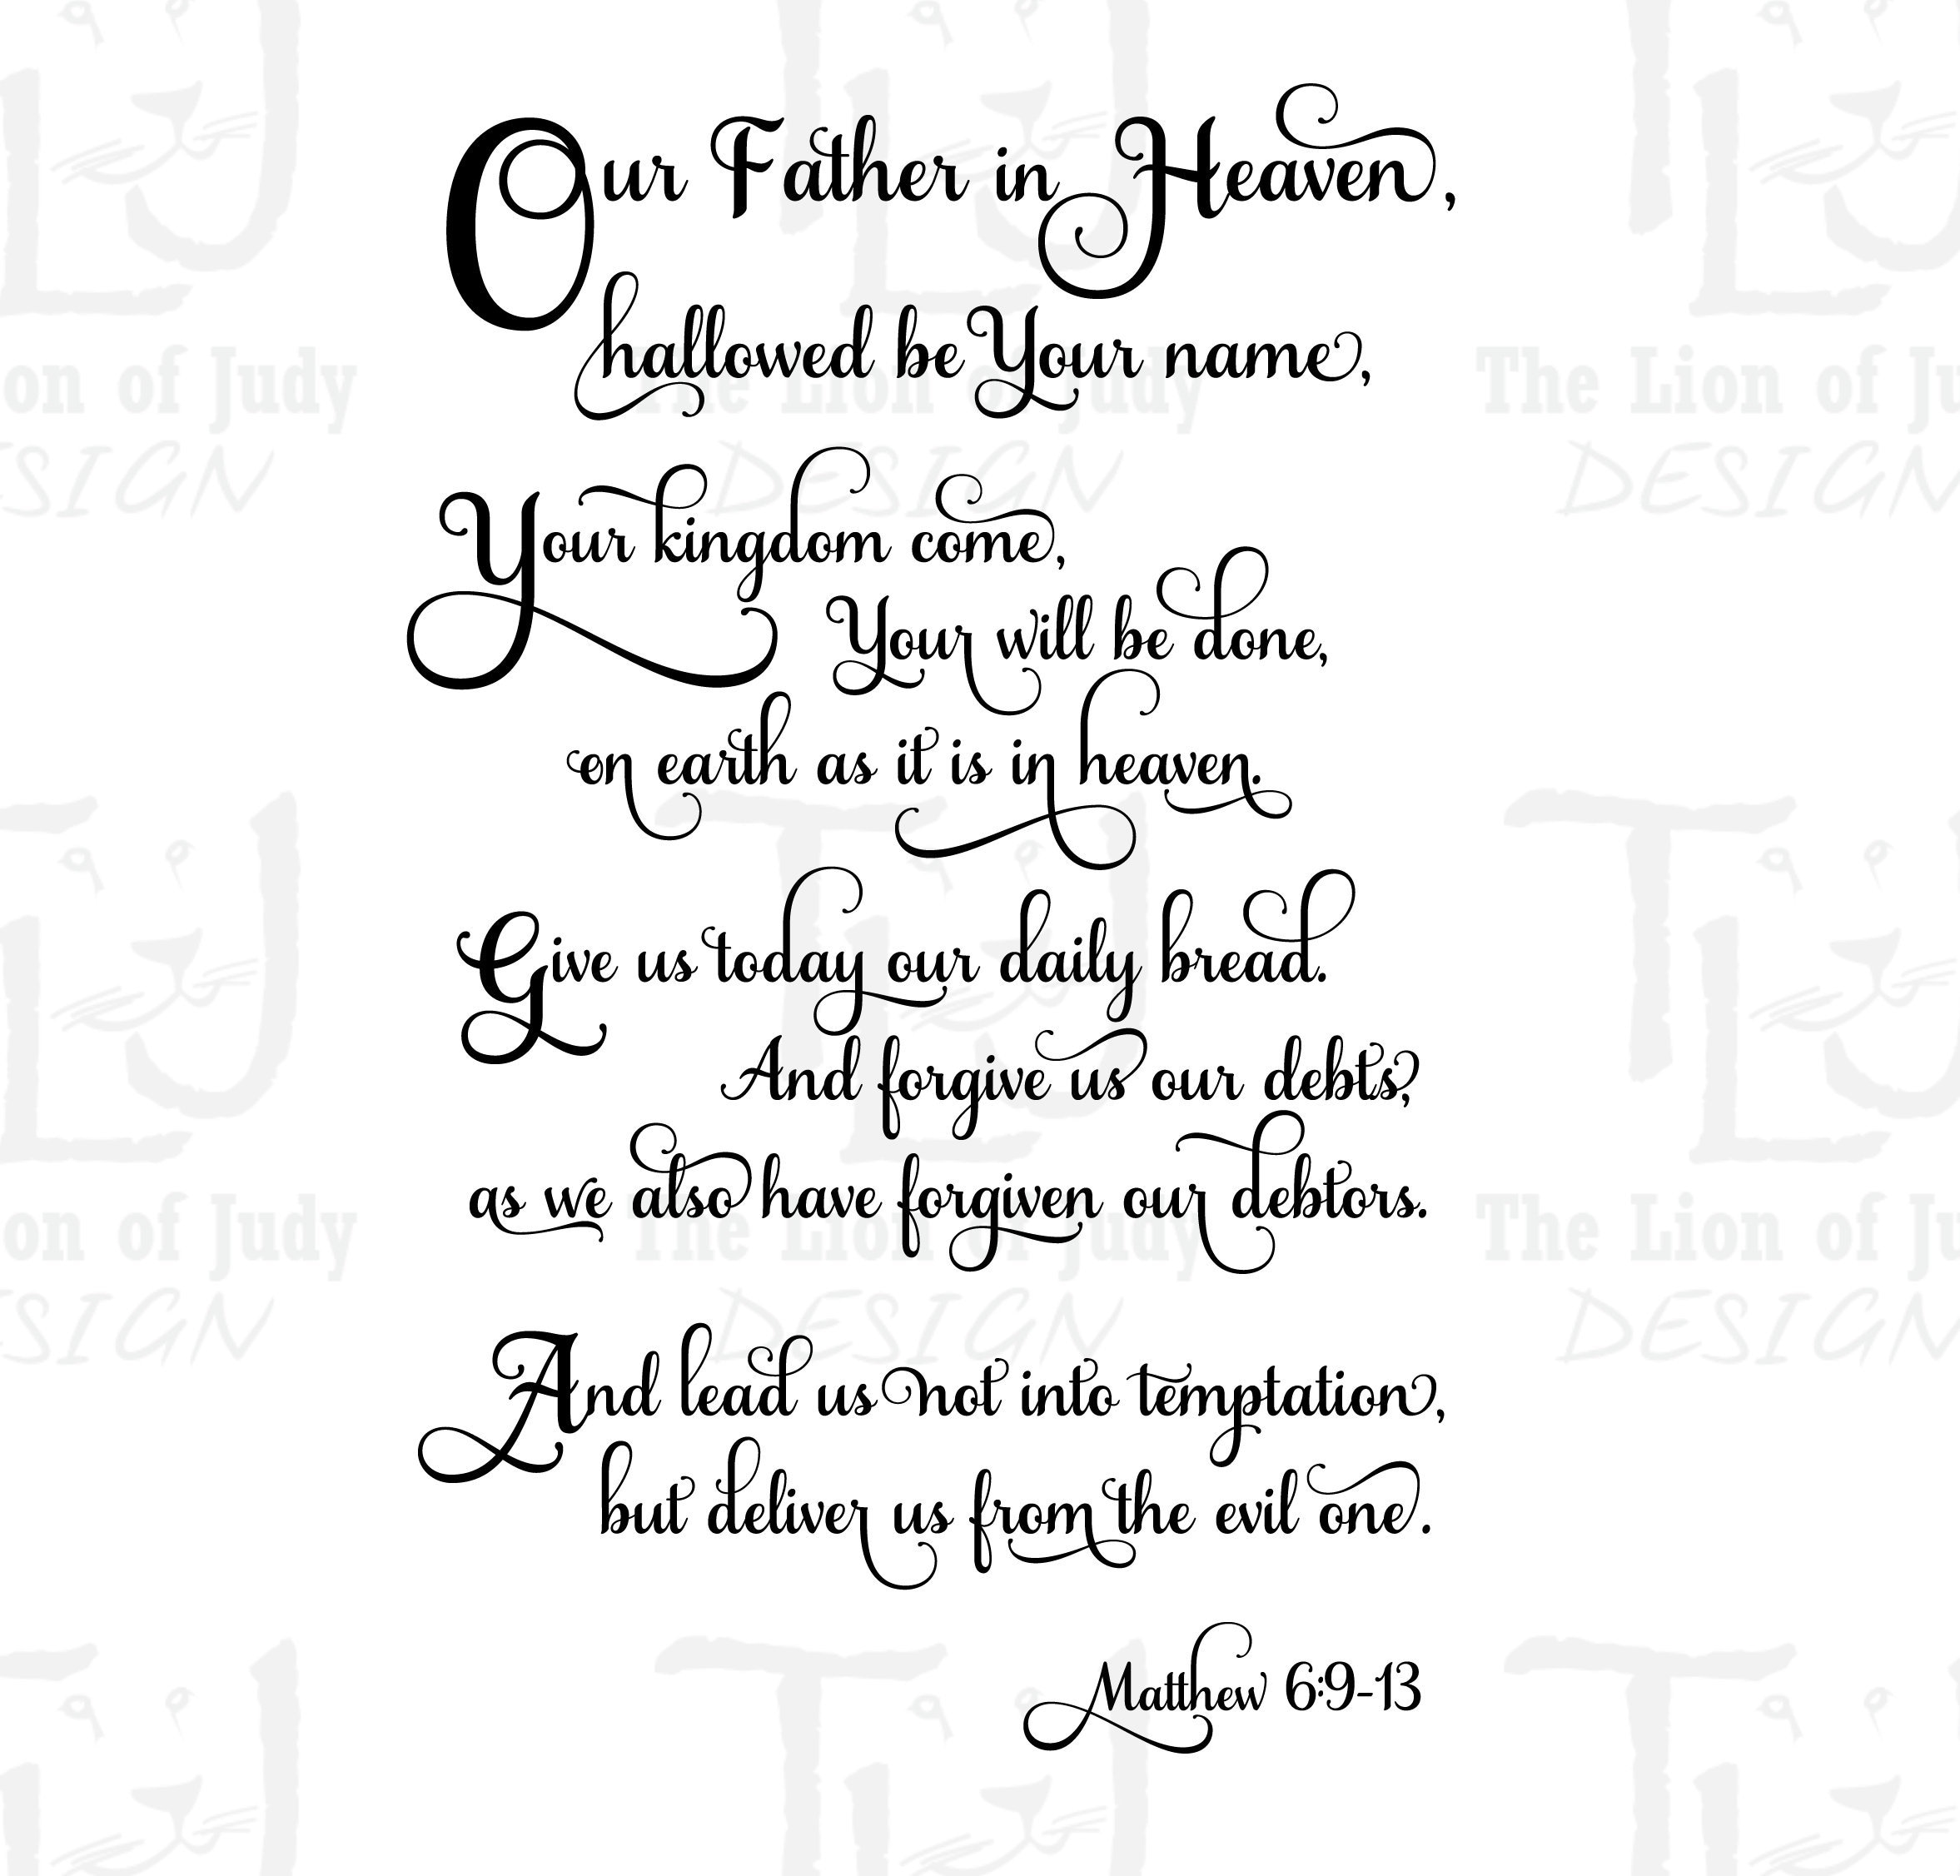 Our Father in Heaven,
hallowed be Your name,
Your kingdom come,
Your will be done,
on earth as it is in heaven.
Give us today our daily bread.
And forgive us our debts,
as we also have forgiven our debtors.
And lead us not into temptation,
but deliver us from the evil one.
Matthew 6:9-13
The Lion of Judy
DESIGN